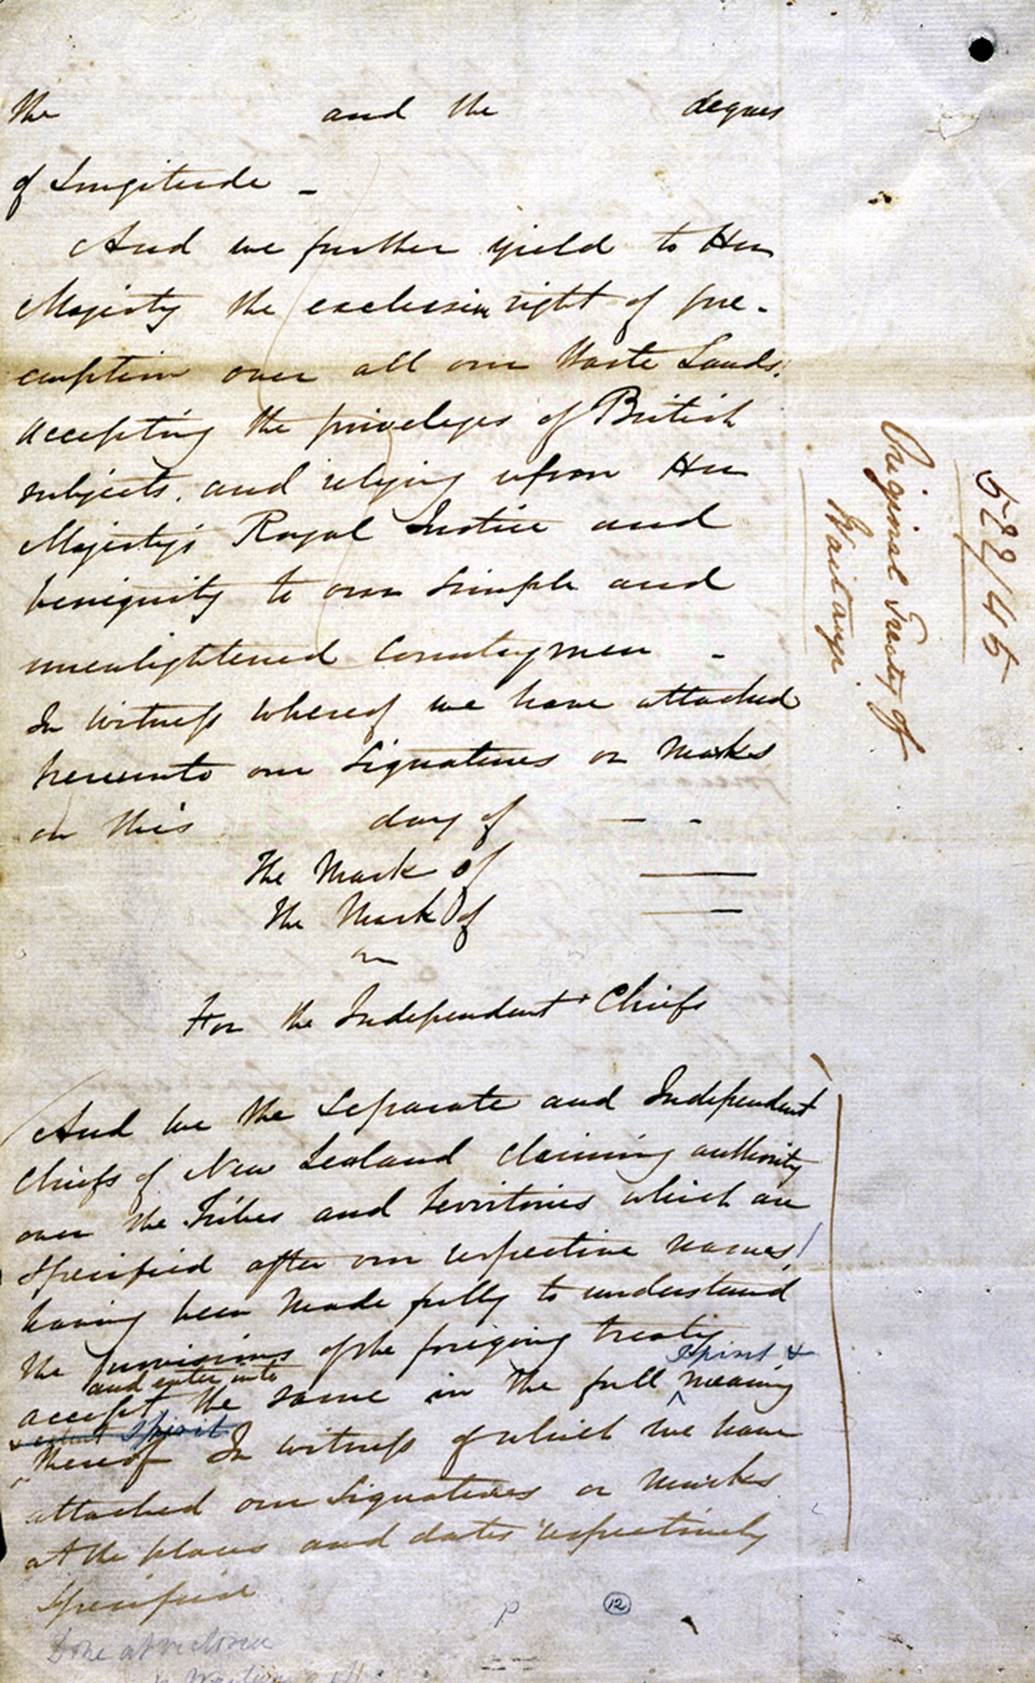 the and the degrees
of Longitude -
And we further yield to Her
Majesty the exclusive right of pre-
emption over all our Waste Lands.
accepting the priveleges of British
subjects, and relying upon Her
Majesty's Royal Justice and
benignity to our simple and
unenlightened Countrymen -
In witness whereof we have attached
hereunto our Signatures or Marks
on this day of — -
The Mark of ——
The Mark of ——
or
For the Independent Chiefs
And we the Separate and Independent
Chiefs of New Zealand claiming authority
over the Tribes and Territories which are
Specified after our respective names,
having been made fully to understand
the provisions of the foregoing treaty
and enter into
Spirit &
accept the same in the full meaning
spirit
thereof In witness of which we have
attached our Signatures or Marks
at the places and dates respectively
Specified
Done at
12
Original Treaty of
Waitangi.
522/45